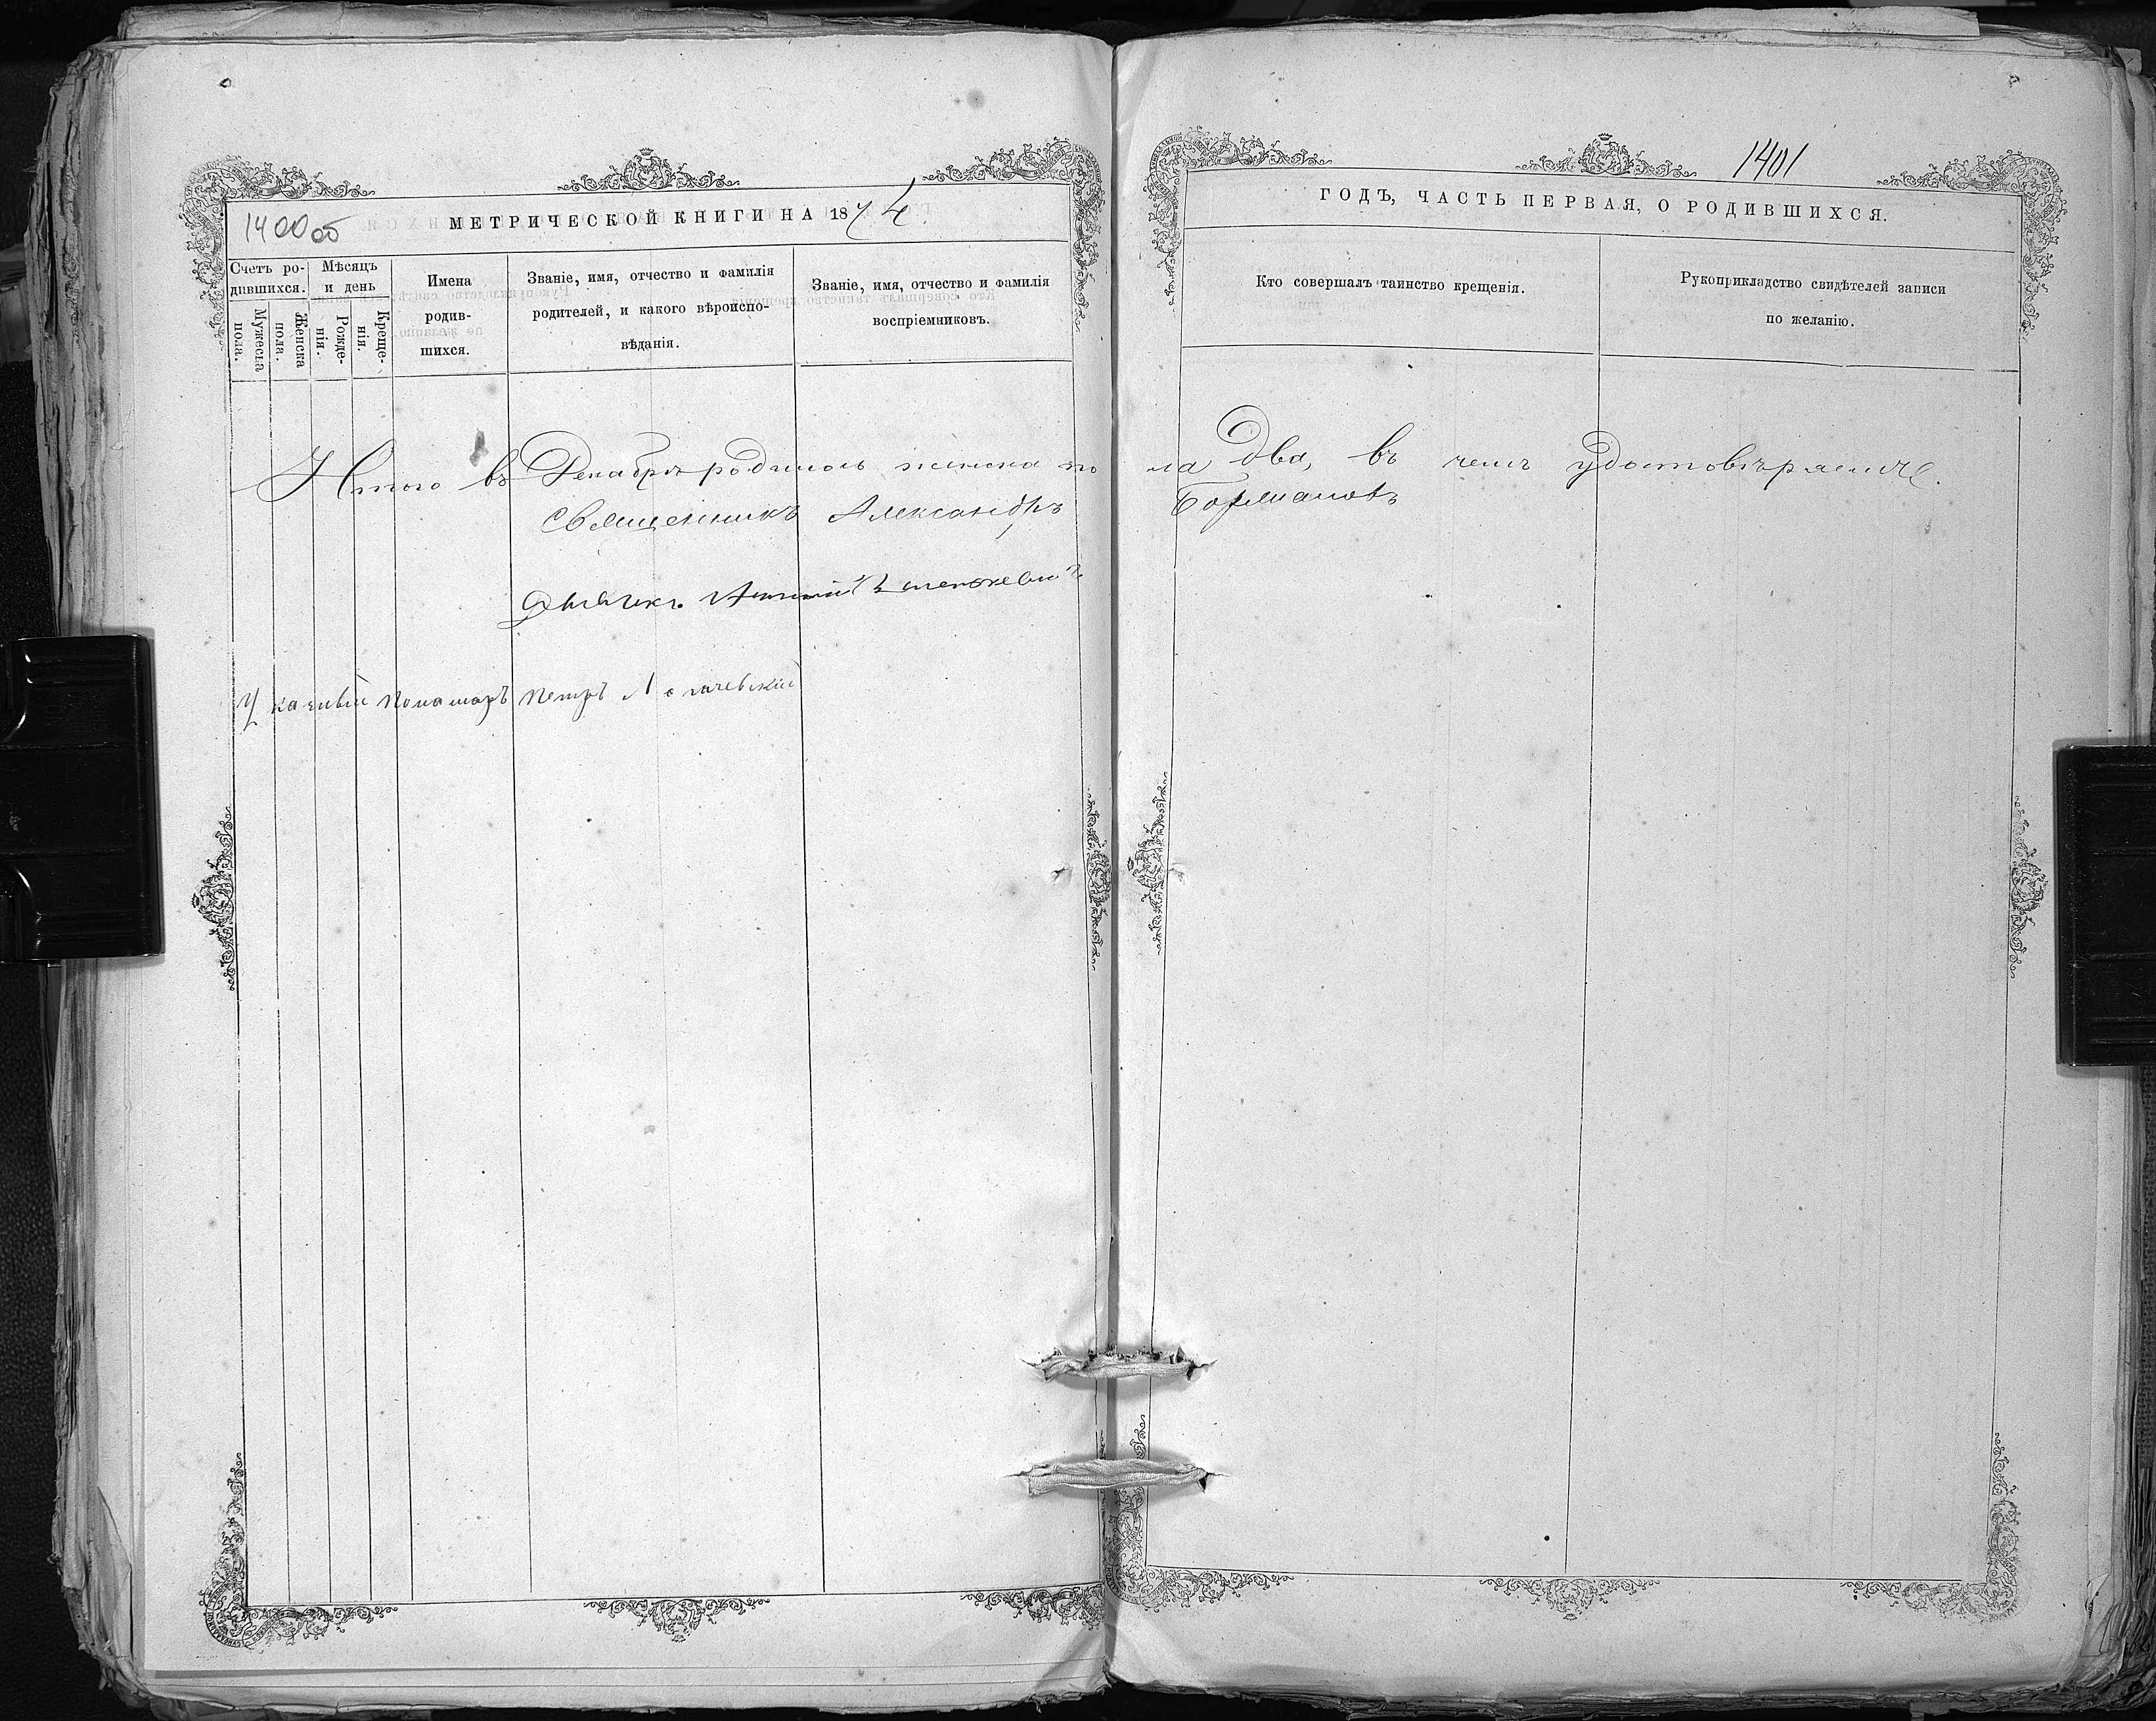 1400 об
МЕТРИЧЕСКОЙ КНИГИ НА 1874
Счетъ ро-
дившихся.
Мѣсяцъ
и день
Мужеска
пола.
Женска
пола.
Рожде-
нія.
Креще-
нія.
Имена
родив-
шихся.
Званіе, имя, отчество и фамилія
родителей, и какого вѣроиспо-
вѣданія.
Званіе, имя, отчество и фамилія
воспріемниковъ.
1401
ГОДЪ, ЧАСТЬ ПЕРВАЯ, О РОДИВШИХСЯ.
Кто совершалъ таинство крещенія.
Рукоприкладство свидѣтелей записи
по желанію.
Итого въ Декабрѣ родилось женска пола два, въ чемъ удостовѣряемъ.
Священникъ Александръ
Указный Пономарь Петръ